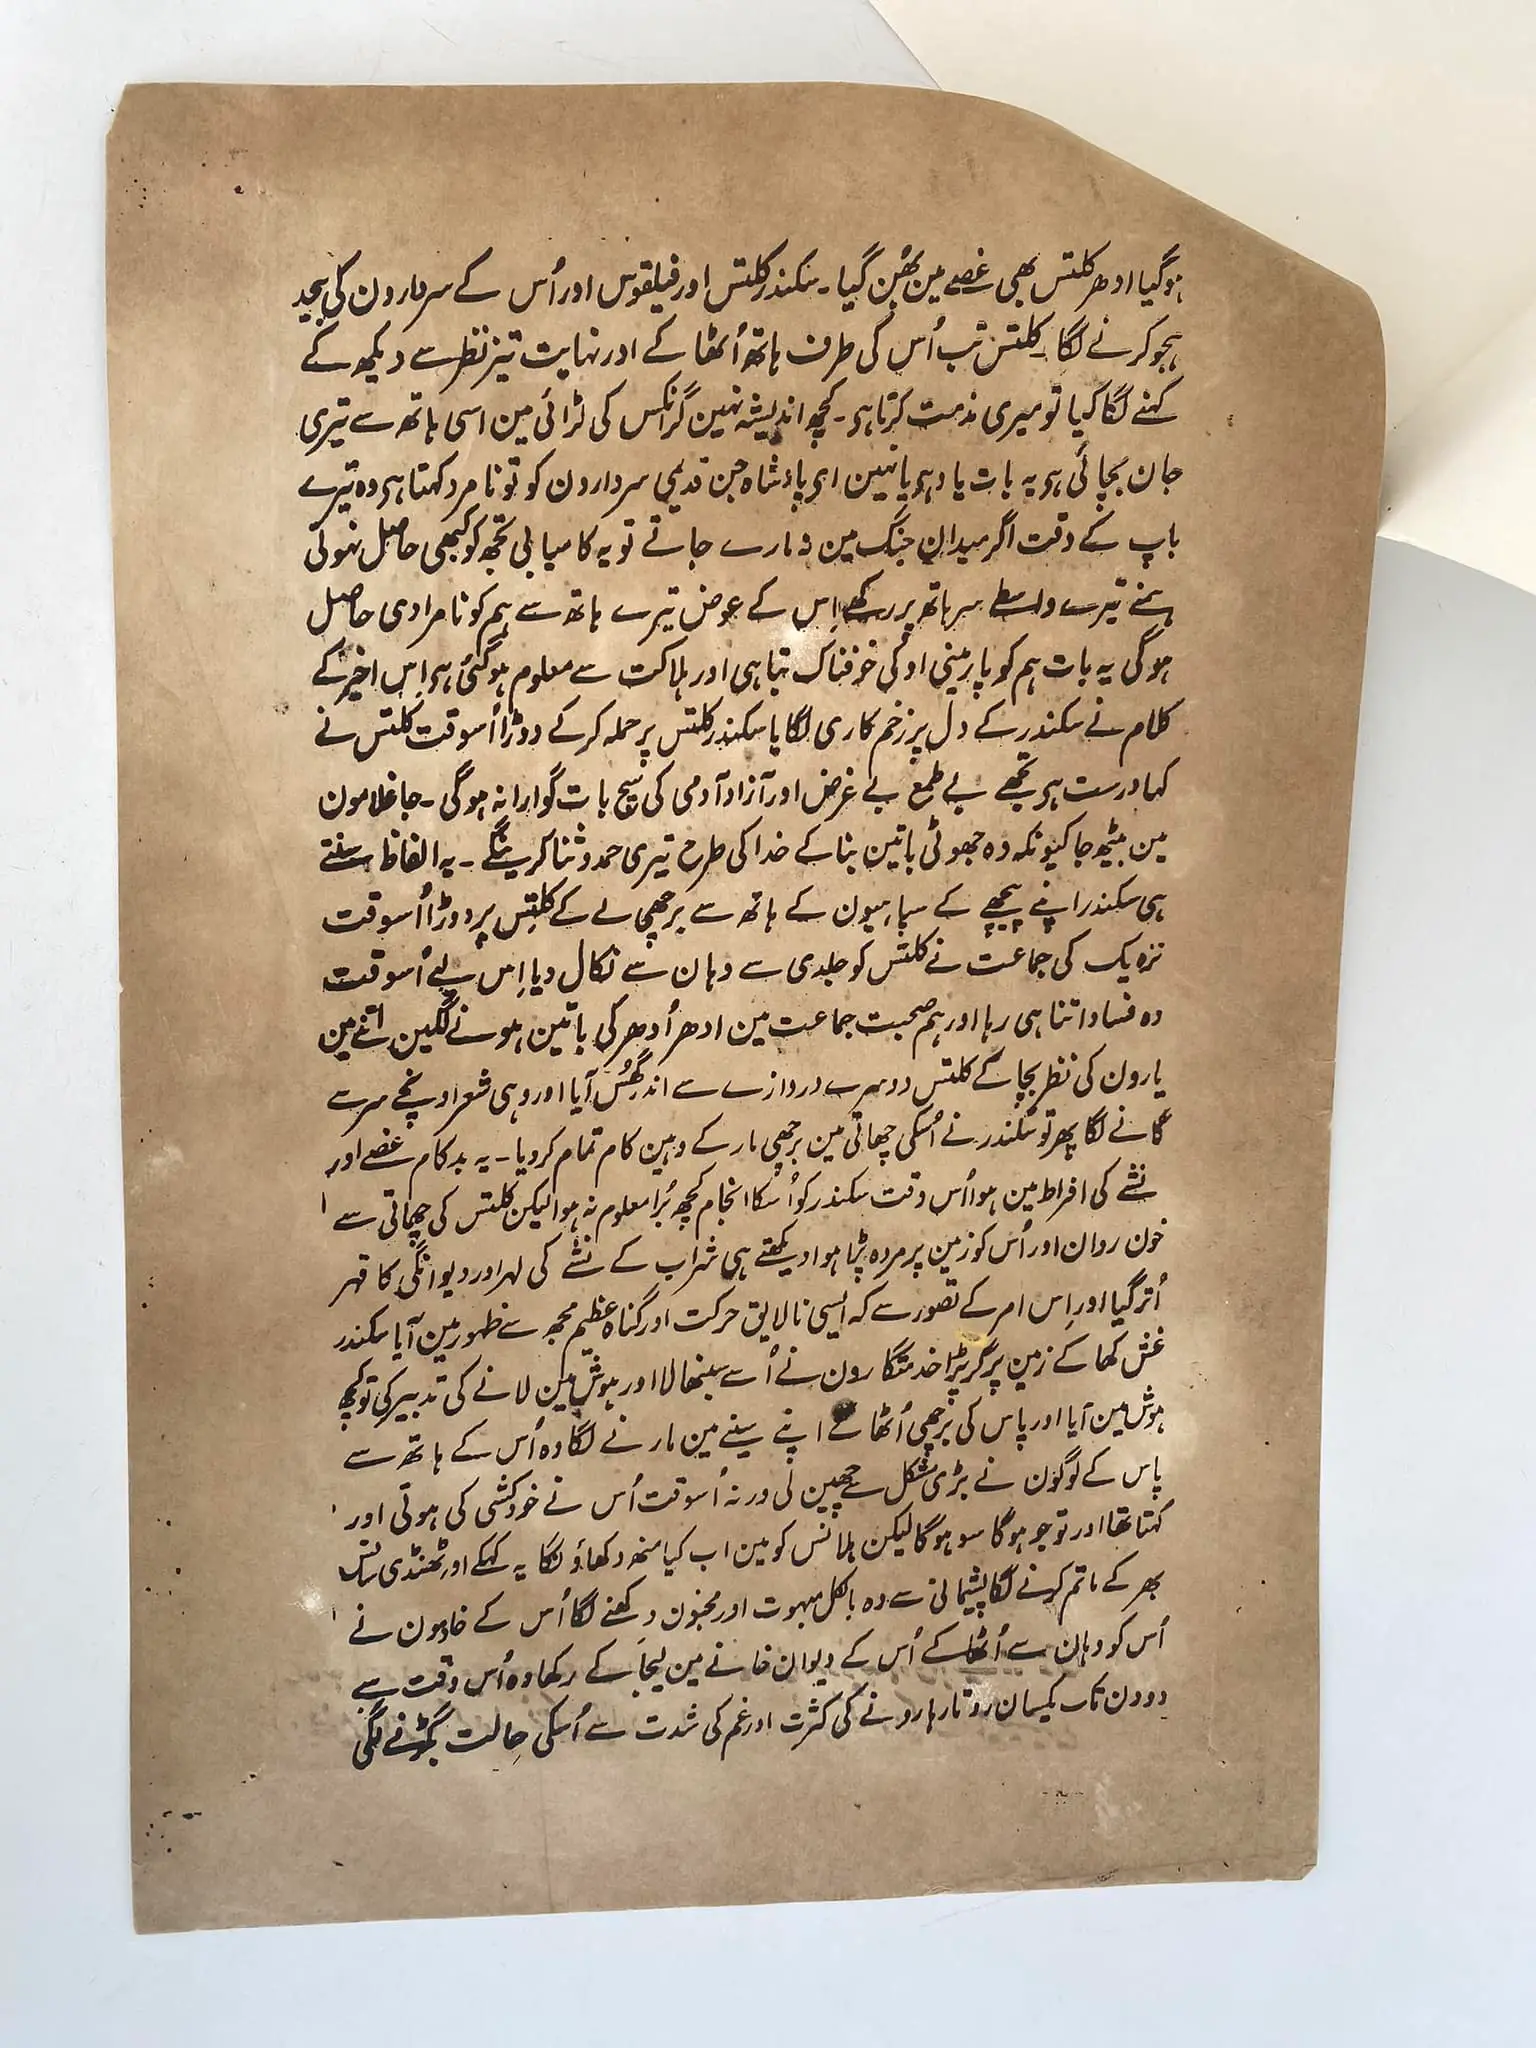 ہوگیا ادھر کلتس بھی غصے مین بھُن گیا۔ سکندر کلتس اور فیلقوس اور اُس کے سردارون کی بیحد
ہجو کرنے لگا۔ کلتس تب اُس کی طرف ہاتھ اُٹھا کے اور نہایت تیز نظر سے دیکھ کے
کہنے لگا کیا تو میری مذمت کرتا ہر۔ کچھ اندیشہ نہین گرانکس کی لڑائی مین اسی ہاتھ سے تیری
جان بچائی ہر یہ بات یاد ہر یا نہین ای پادشاہ جن قدیمی سردارون کو تو نامرد کہتا ہر وہ تیرے
باپ کے وقت اگر میدان جنگ مین نہ مارے جاتے تو یہ کامیابی تجھ کو کبھی حاصل نہوتی
ہمنے تیرے واسطے سر ہاتھ پر رکھے اِس کے عوض تیرے ہاتھ سے ہم کو نامرادی حاصل
ہوگی یہ بات ہم کو پارمینی او کی خوفناک تباہی اور ہلاکت سے معلوم ہوگئی ہر اِس اخیر کے
کلام نے سکندر کے دل پر زخم کاری لگایا سکندر کلتس پر حملہ کر کے دوڑا اُسوقت کلتس نے
کہا درست ہر تجھے بے طمع بے غرض اور آزاد آدمی کی سچ بات گوارا نہ ہوگی۔ جا غلامون
مین بیٹھ جا کیونکہ وہ جھوٹی باتین بنا کے خدا کی طرح تیری حمد و ثنا کرینگے۔ یہ الفاظ سنتے
ہی سکندر اپنے پیچھے کے سپاہیون کے ہاتھ سے برچھی لے کے کلتس پر دوڑا اُسوقت
نزدیک کی جماعت نے کلتس کو جلدی سے وہان سے نکال دیا اِس لیے اُسوقت
وہ فساد اتنا ہی رہا اور ہم صحبت جماعت مین ادھر اُدھر کی باتین ہونے لگین اتنے مین
یارون کی نظر بچا کے کلتس دوسرے دروازے سے اندر گھُس آیا اور وہی شعر اونچے سر سے
گانے لگا پھر تو سکندر نے اُسکی چھاتی مین برچھی مار کے وہین کام تمام کر دیا۔ یہ بد کام غصے اور
نشے کی افراط مین ہوا اُس وقت سکندر کو اُسکا انجام کچھ بُرا معلوم نہ ہوا لیکن کلتس کی چھاتی سے
خون روان اور اُس کو زمین پر مردہ پڑا ہوا دیکھتے ہی شراب کے نشے کی لہر اور دیوانگی کا قہر
اُتر گیا اور اِس امر کے تصور سے کہ ایسی نالایق حرکت اور گناہ عظیم مجھ سے ظہور مین آیا سکندر
غش کھا کے زمین پر گر پڑا خدمتگارون نے اُسے سنبھالا اور ہوش مین لانے کی تدبیر کی تو کچھ
ہوش مین آیا اور پاس کی برچھی اُٹھا کے اپنے سینے مین مارنے لگا وہ اُس کے ہاتھ سے
پاس کے لوگون نے بڑی مشکل سے چھین لی ورنہ اُسوقت اُس نے خودکشی کی ہوتی اور
کہتا تھا اور تو جو ہوگا سو ہوگا لیکن ہلانس کو مین اب کیا منھ دکھاؤ نگا یہ کہکے اور ٹھنڈی سانس
بھر کے ماتم کرنے لگا پشیمانی سے وہ بالکل مبہوت اور مجنون دکھنے لگا اُس کے خادمون نے
اُس کو وہان سے اُٹھا کے اُس کے دیوان خانے مین لیجا کے رکھا وہ اُس وقت سے
دو دن تک یکسان روتا رہا رونے کی کثرت اور غم کی شدت سے اُسکی حالت بگڑنے لگی